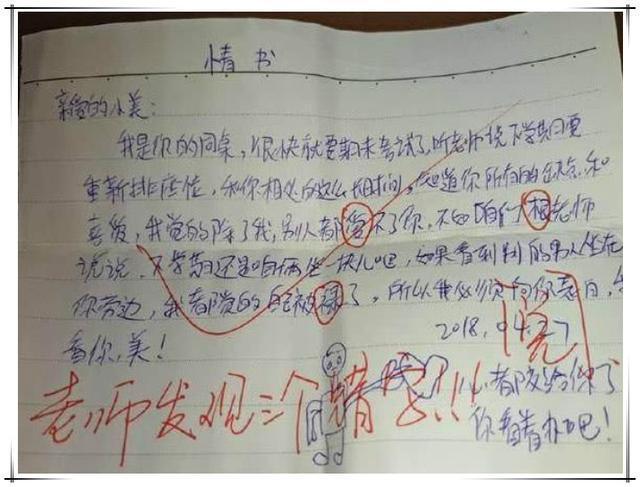 情书
亲爱的小美:
我是你的同桌,很快就要期末考试了,听老师说下学期要
重新排座位,和你相处的这么长时间,知道你所有的缺点和
喜爱,我觉的除了我,别人都受不了你,不如咱们个相老师
说说,下学期还是咱俩坐一块儿吧,如果看到别的男人坐在
你旁边,我都觉的自己被绿了,所以我必须向你表白,
看你,美!
2018.04.27
老师发现三个错字!!!
心都交给你了
你看着办吧!